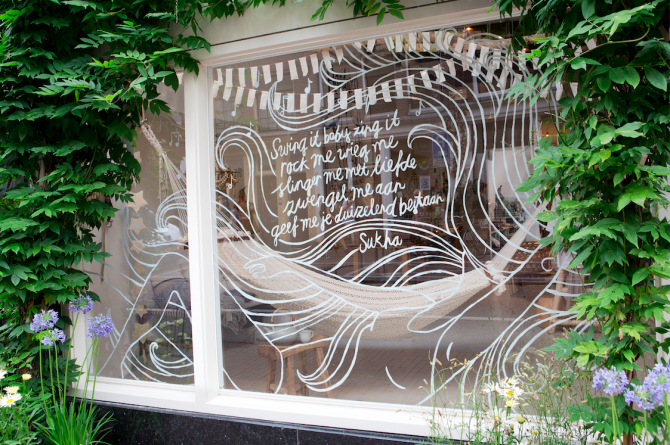 Swing it baby, zing it
rock me wieg me
slinger me met liefde
zwengel me aan
geef me je duizelend bestaan
Sukha